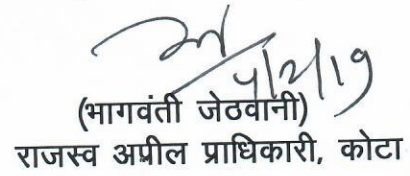 4/2/19
(भागवंती जेठवानी)
राजस्व अपील प्राधिकारी, कोटा